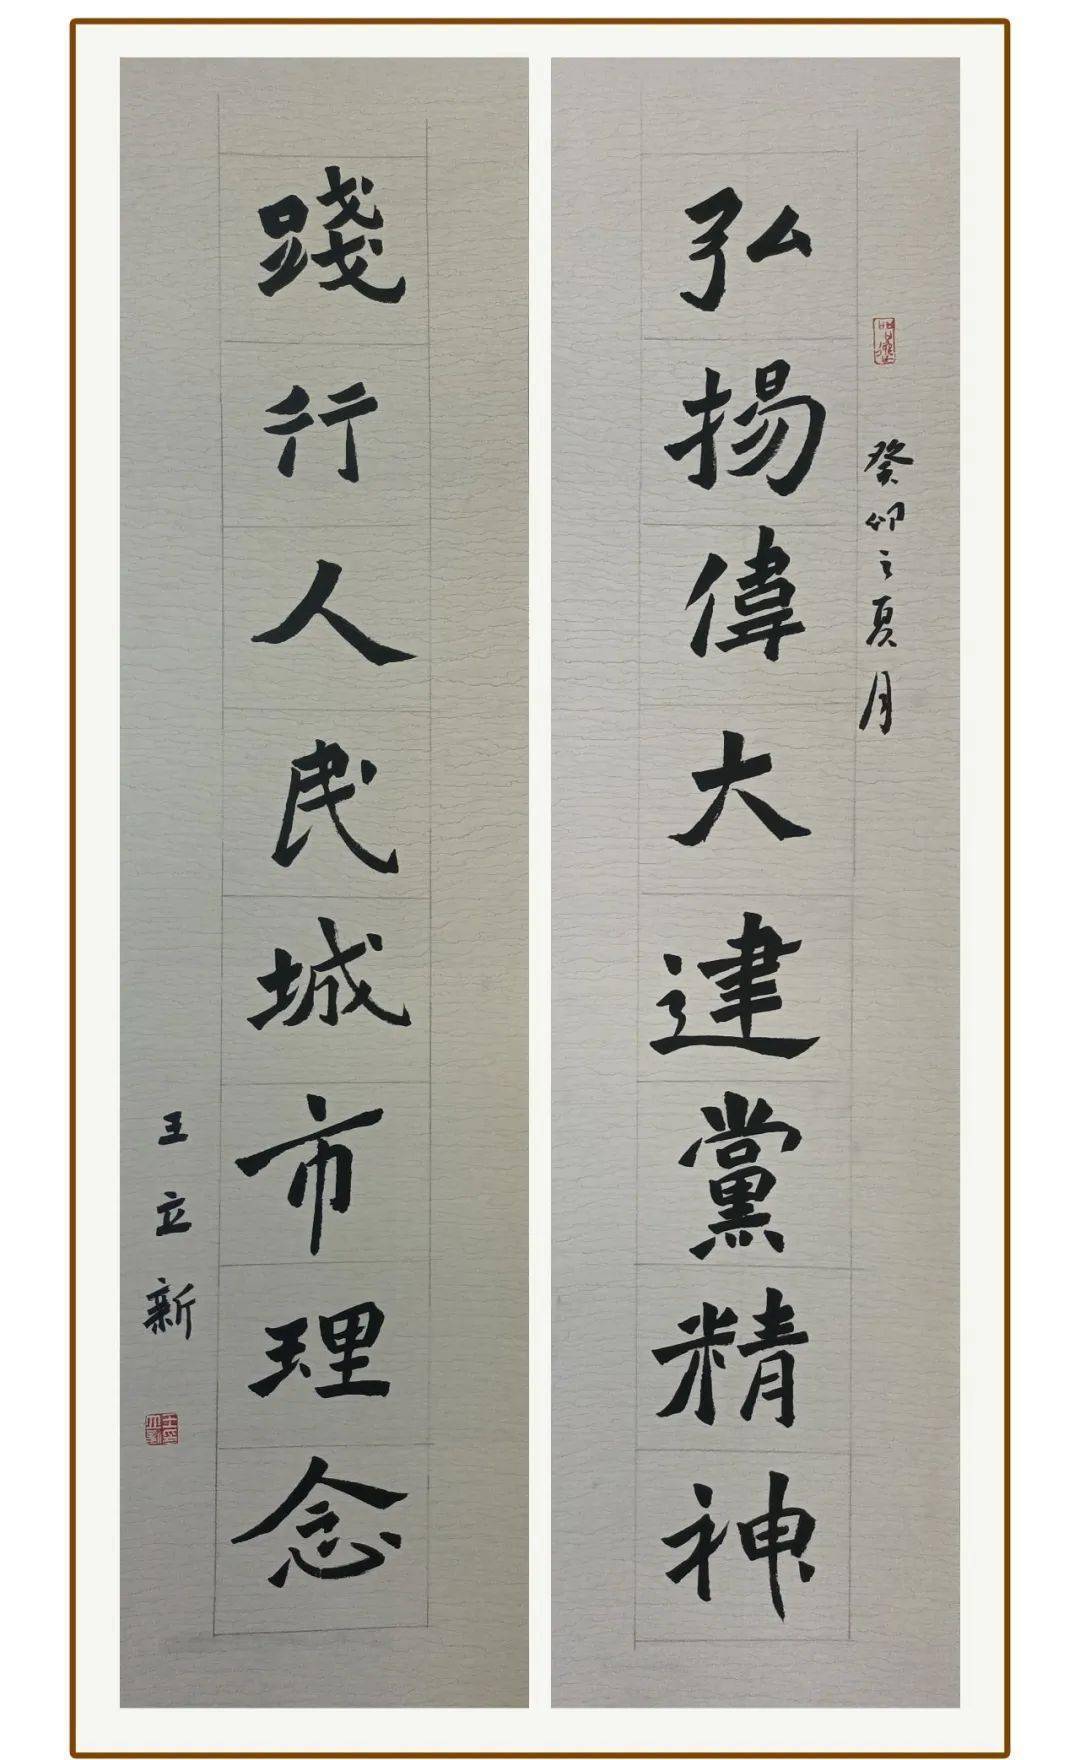 弘揚偉大建黨精神
癸卯之夏月
踐行人民城市理念
王立新